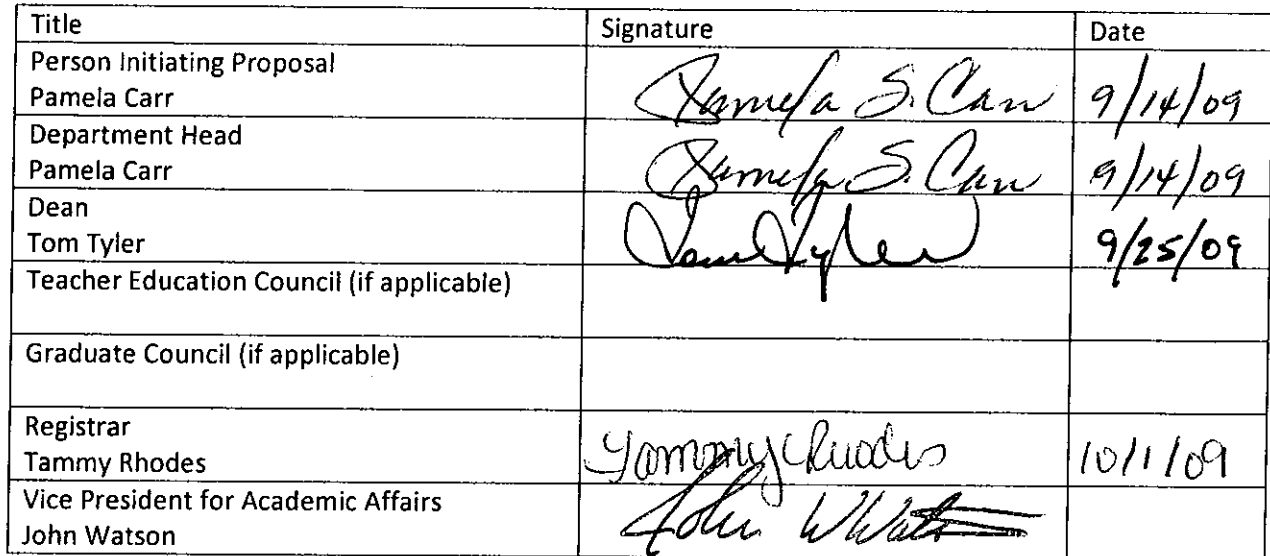 Title Signature Date
Person Initiating Proposal
Pamela Carr Pamela S. Carr 9/14/09
Department Head
Pamela Carr Pamela S. Carr 9/14/09
Dean
Tom Tyler Tom Tyler 9/25/09
Teacher Education Council (if applicable)
Graduate Council (if applicable)
Registrar
Tammy Rhodes Tammy Rhodes 10/1/09
Vice President for Academic Affairs
John Watson John W Watson